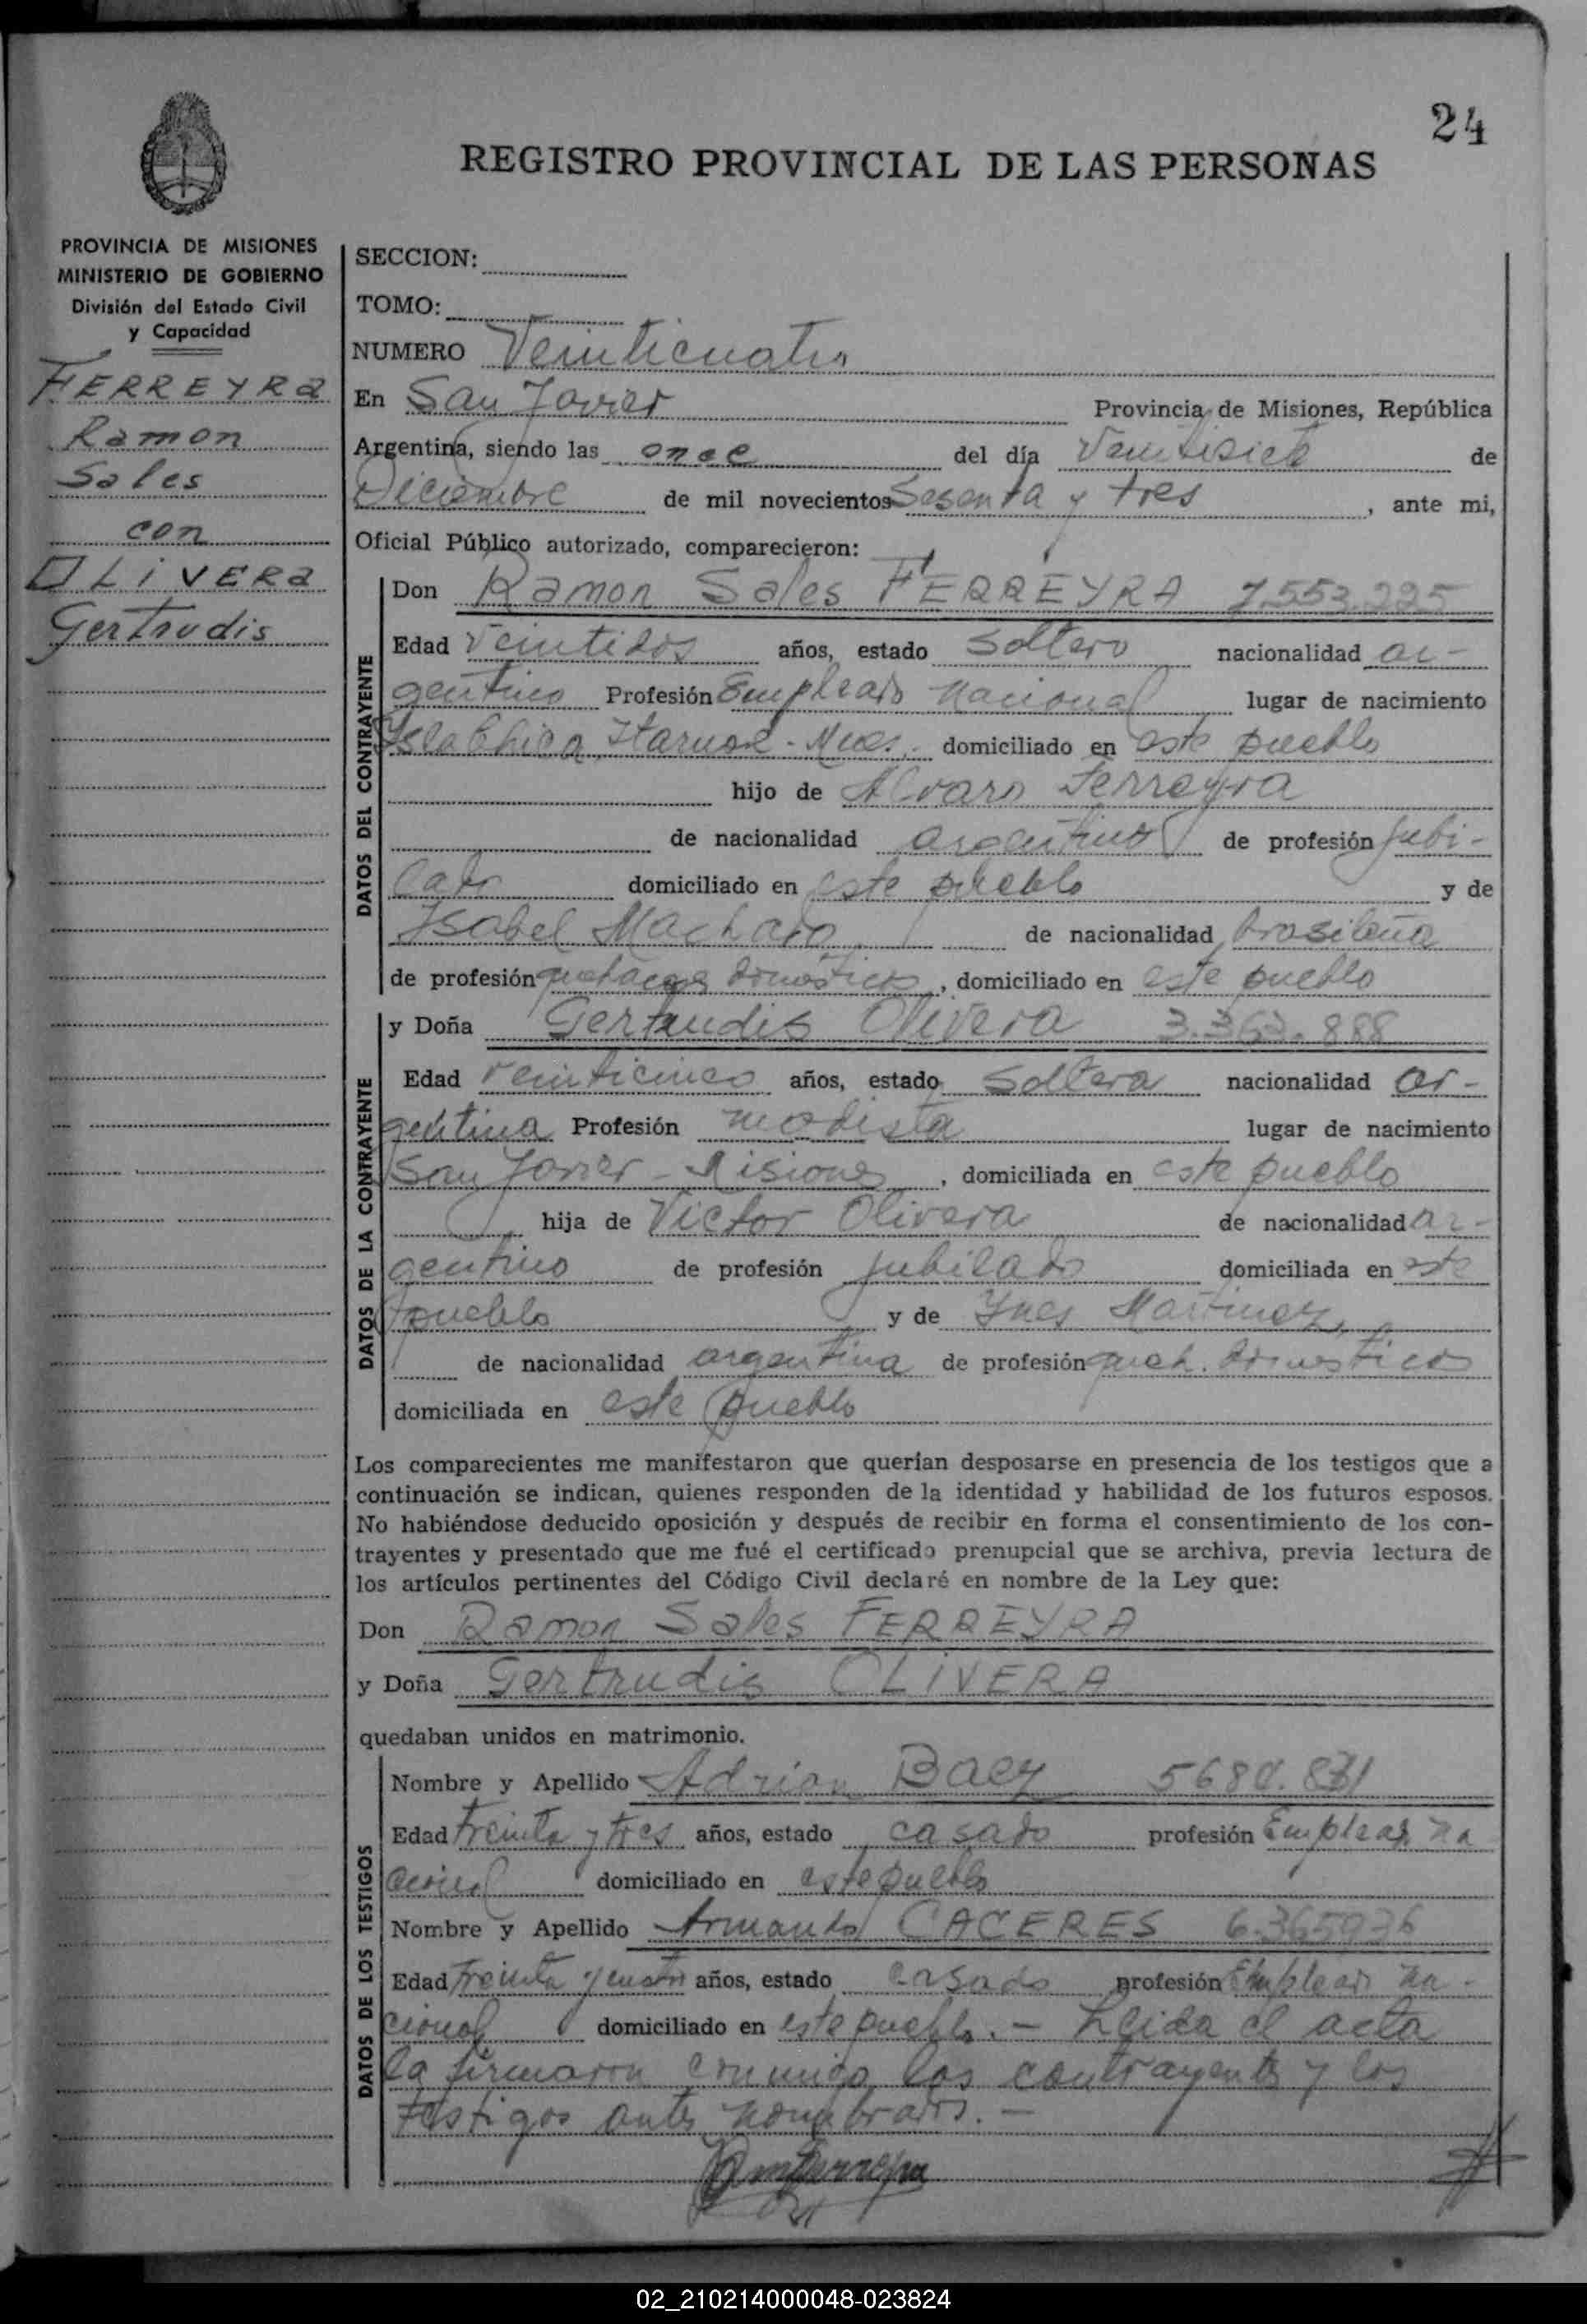 24
REGISTRO PROVINCIAL DE LAS PERSONAS
PROVINCIA DE MISIONES
MINISTERIO DE GOBIERNO
División del Estado Civil
y Capacidad
FERREYRA
Ramon
Sales
con
OLIVERA
Gertrudis
SECCION:
TOMO:
NUMERO Veinticuatro
En San Javier Provincia de Misiones, República
Argentina, siendo las once del día Veintisiete de
Diciembre de mil novecientos Sesenta y tres, ante mi,
Oficial Público autorizado, comparecieron:
DATOS DEL CONTRAYENTE
Don Ramon Sales FERREYRA 7.553.225
Edad veintidos años, estado soltero nacionalidad ar-
gentino Profesión Empleado Nacional lugar de nacimiento
Isla Chica, domiciliado en este pueblo
hijo de Alvaro Ferreyra
de nacionalidad argentino de profesión jubi-
lado domiciliado en este pueblo y de
Isabel Machado de nacionalidad brasileña
de profesión quehaceres domésticos, domiciliado en este pueblo
DATOS DE LA CONTRAYENTE
y Doña Gertrudis Olivera 3.363.888
Edad veinticinco años, estado Soltera nacionalidad ar-
gentina Profesión modista lugar de nacimiento
San Javier - Misiones, domiciliada en este pueblo
hija de Victor Olivera de nacionalidad ar-
gentino de profesión jubilado domiciliada en este
pueblo y de Ynes Martinez,
de nacionalidad argentina de profesión queh. domesticos
domiciliada en este pueblo
Los comparecientes me manifestaron que querían desposarse en presencia de los testigos que a
continuación se indican, quienes responden de la identidad y habilidad de los futuros esposos.
No habiéndose deducido oposición y después de recibir en forma el consentimiento de los con-
trayentes y presentado que me fué el certificado prenupcial que se archiva, previa lectura de
los artículos pertinentes del Código Civil declaré en nombre de la Ley que:
Don Ramon Sales FERREYRA
y Doña Gertrudis OLIVERA
quedaban unidos en matrimonio.
DATOS DE LOS TESTIGOS
Nombre y Apellido Adrian Baez
Edad Treinta y tres años, estado casado profesión Empleado na
cional domiciliado en este pueblo
Nombre y Apellido Armando CACERES
Edad Treinta y cuatro años, estado casado profesión Empleado na-
cional domiciliado en este pueblo. - Leida el acta
la firmaron conmigo los contrayentes y los
testigos antes nombrados. -
02_210214000048-023824